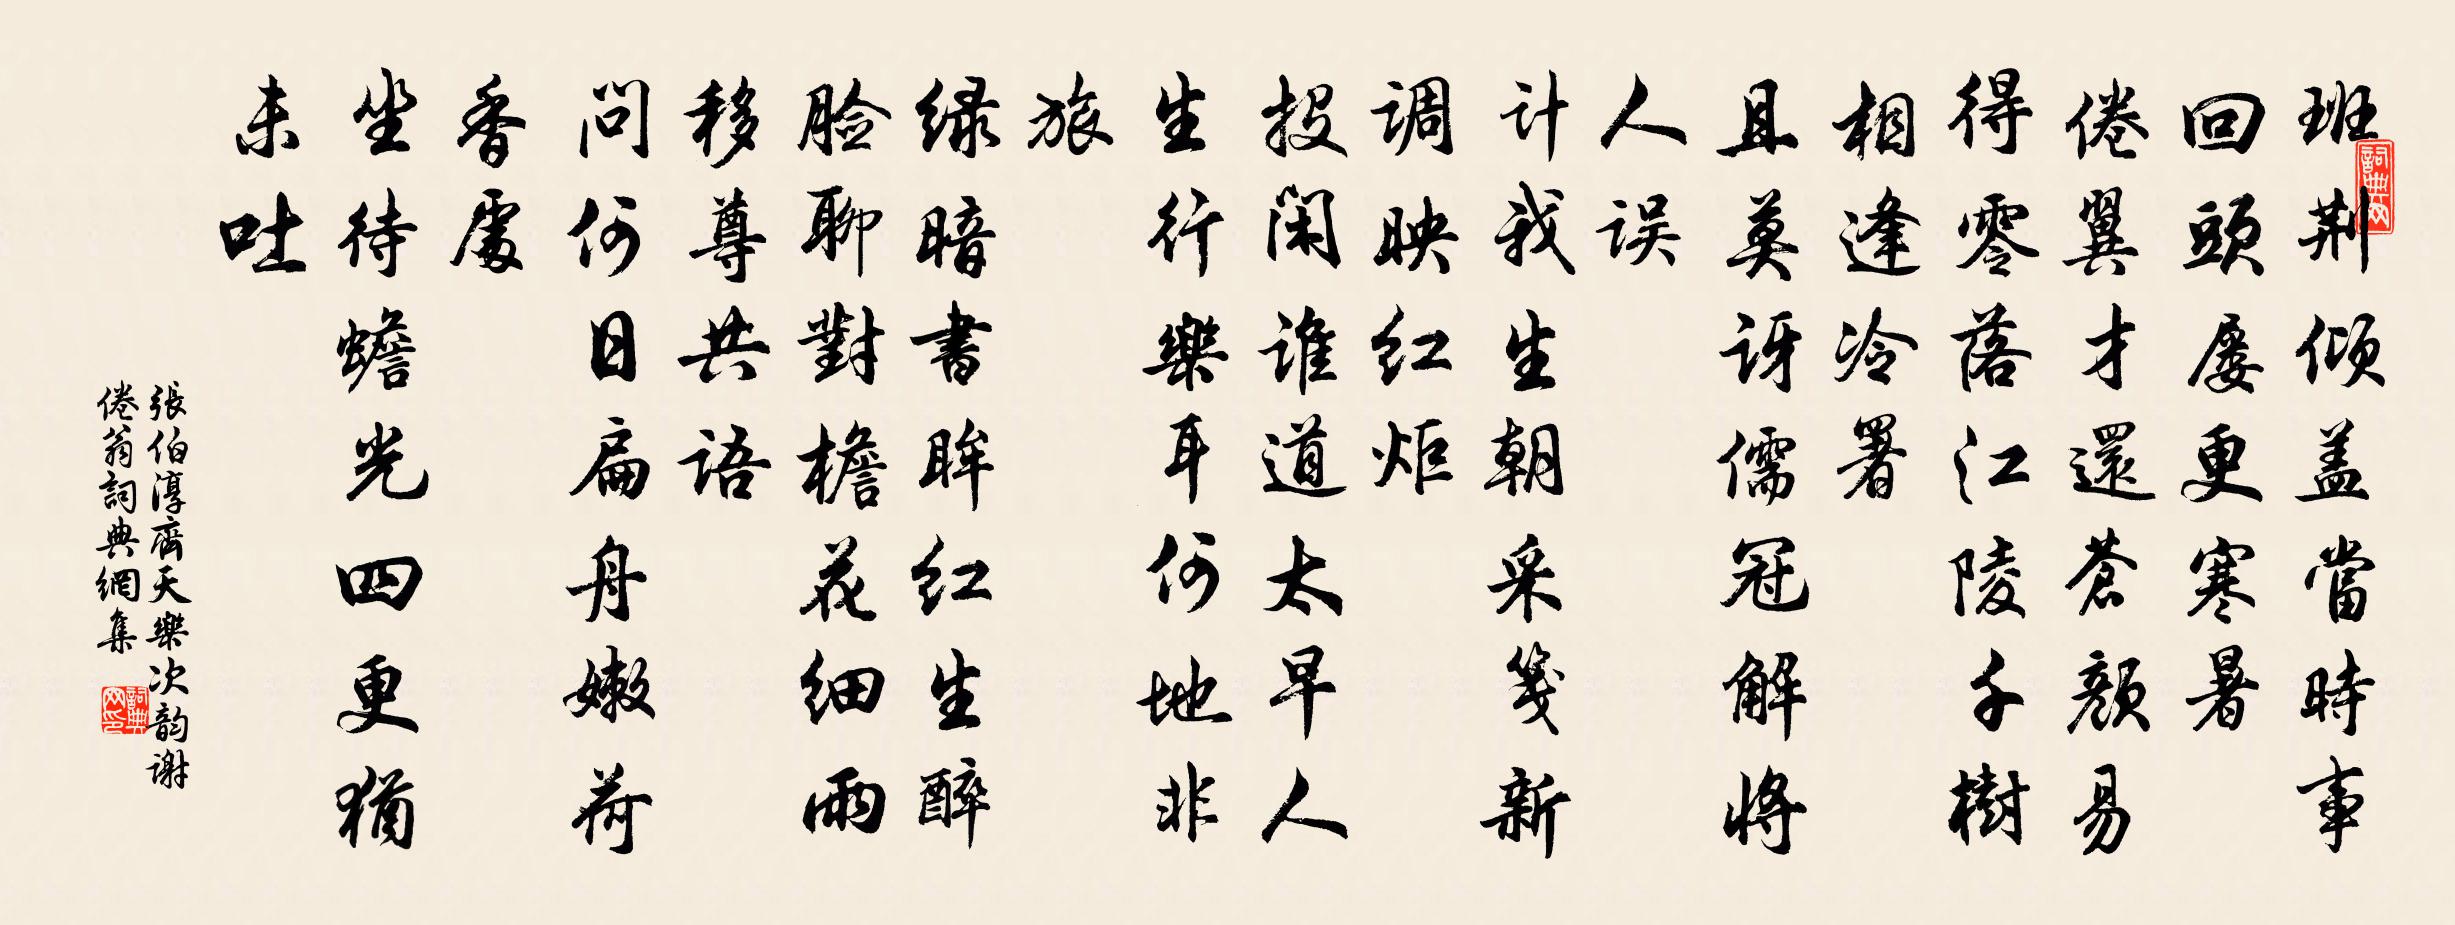 班荆倾盖當時事
回頭屡更寒暑
倦翼才還蒼颜易
得零落江陵千樹
相逢冷署
且莫讶儒冠解将
人误
计我生朝采笺新
调映红炬
投闲谁道太早人
生行樂耳何地非
旅
緑暗書眸红生醉
脸聊對檐花细雨
移尊共语
问何日扁舟嫩荷
香處
坐待蟾光四更猶
未吐
張伯淳齊天樂次韵谢
倦翁詞典網集
詞典网
詞典网印